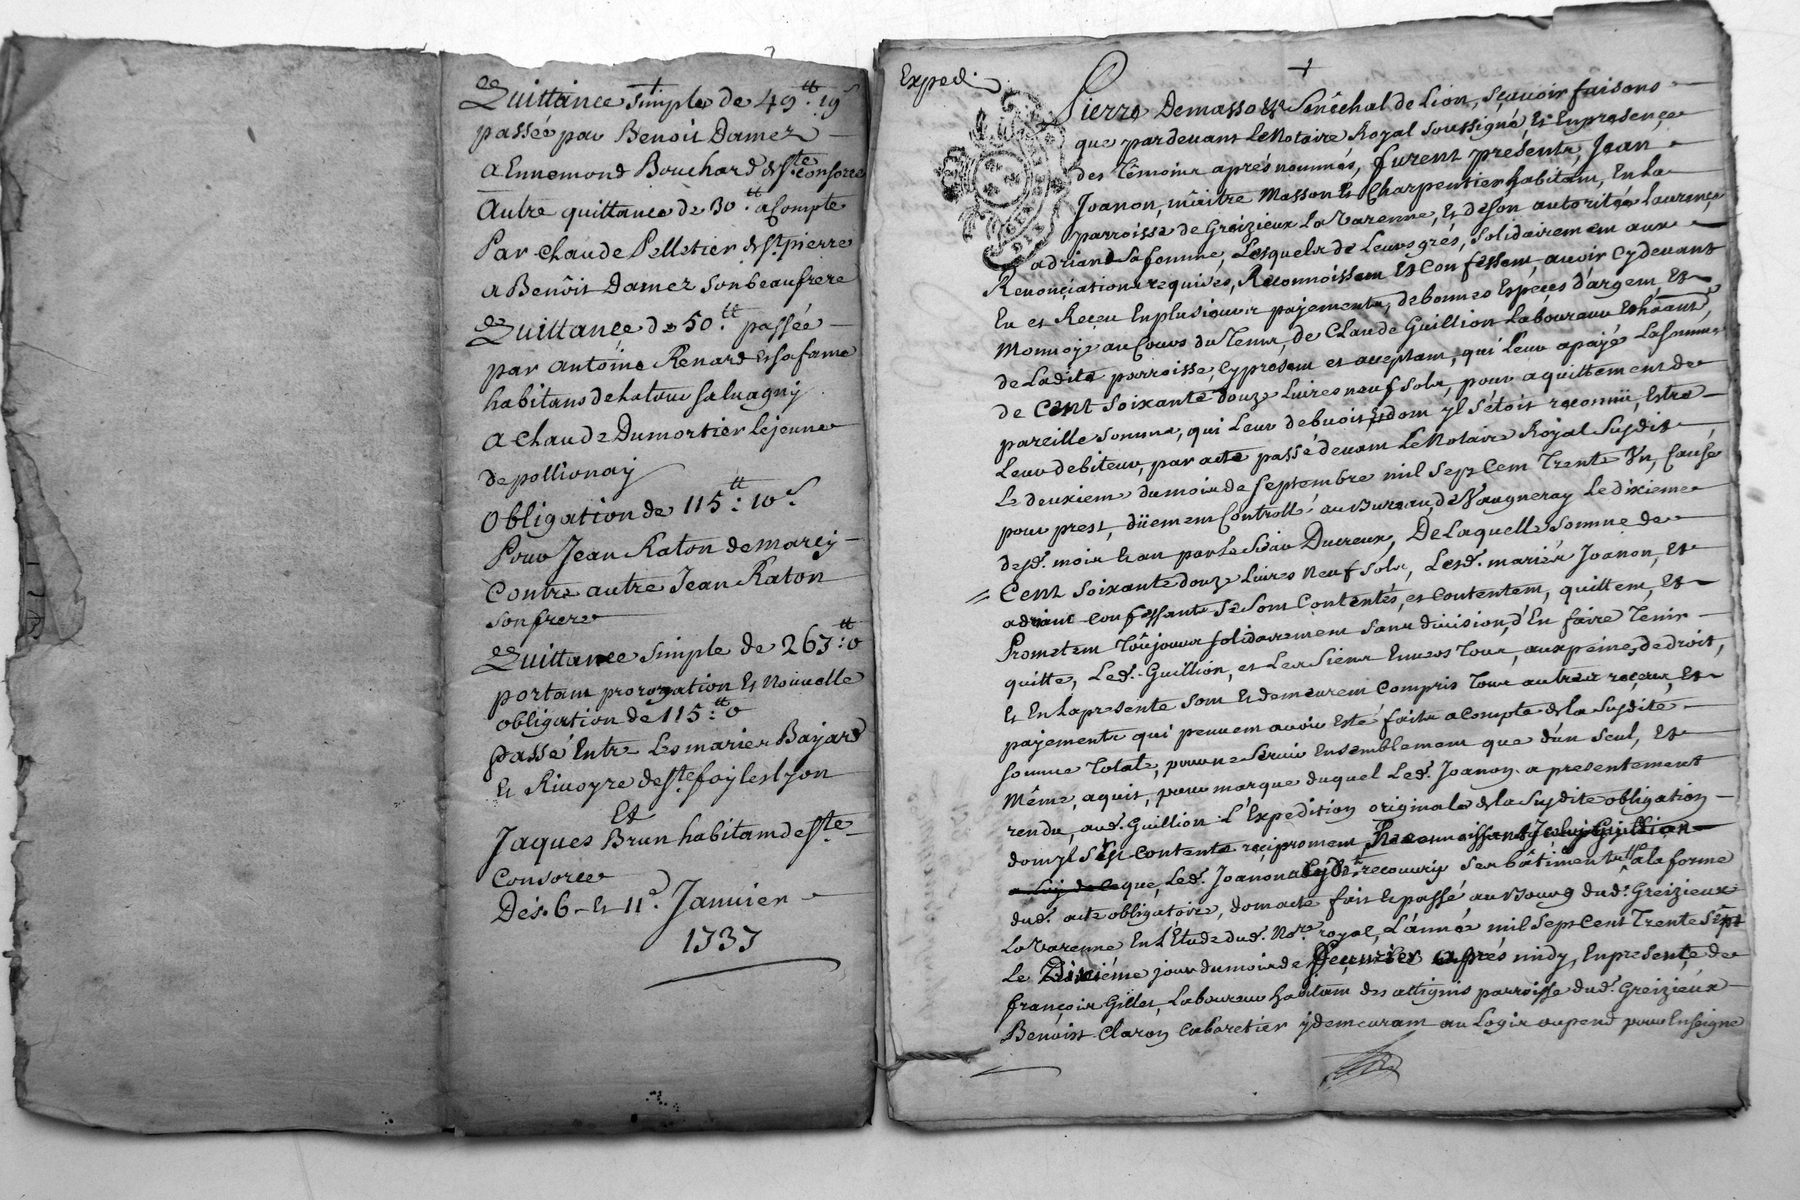 Quittance simple de 49.tt 19s
passée par Benoit Damez
a Ennemond Bouchard de Ste consorce
Autre quittance de 30.tt a Compte
Par Claude Pelletier de St pierre
a Benoit Damez son beaufrere
Quittance de 50.tt passée
par antoine Renard et sa fame
habitans de Latour Salvagny
a Claude Dumortier Lejeune
de pollionay
Obligation de 115.tt: 10s
Pour Jean Raton de marcy
Contre autre Jean Raton
son frere
Quittance simple de 263.tt: 0
portant prorogation et Nouvelle
obligation de 115:tt 0
passé Entre Les mariez Bayard
et Rivoyre de Ste foy les lyon
Et
Jaques Brun habitam de Ste
Consorce
Dés. 6. et 11e. Janvier
1737
Exped.
+
Pierre Demasso Senéchal de Lion, sçavoir faisons
que pardevant Le Notaire Royal soussigné, et Enpresence
des Témoins aprés nommés, furent présents, Jean
Joanon, maitre Masson et Charpentier habitam, En La
parroisse de Greizieux La Varenne, et de son autorité Laurence
adriand sa femme, Lesquels de Leurs grés, solidairement aux
Renonciations requises, Reconnoissem et Confessem, avoir Cydevant
Eu et Reçeu En plusieurs payements, de bonnes Espéces d'argem, et
Monnoye au Cours du Tems, de Claude Guillion Laboureur
de Ladite parroisse, Cy presem et acceptam, qui Leur a payé La somme
de Cent soixante douze Livres neuf sols, pour aquittement de
pareille somme, qui Leur debvoit, et dom yl s'étoit reconnü, Estre
Leur debiteur, par acte passé devam Le Notaire Royal susdit
Le deuxieme du mois de septembre mil sept Cem Trente Un, Causé
pour prest, düement Controllé au Bureau de Vaugneray Le dixieme
desd. mois et an par Le Sieur Ducreux, De Laquelle somme de
Cent soixante douze Livres neuf sols, Lesd. mariés Joanon, et
adriant Confessants se sont Contentés, et Contentem, quittem, et
Prometem Toûjours solidairement sans division, d'En faire Tenir
quitte, Led. Guillion, et Les siens Envers Tous, aux peines de droit,
et En La presente som et demeurem Compris Tous autres reçeus, et
payements qui peuvem avoir Esté faits a Compte de la susdite
somme Totale, pour ne servir Ensemblemam que d'un seul, et
Même, aquit, pour marque duquel Led. Joanon a presentement
rendu, aud. Guillion L'Expedition originale de la susdite obligation
dom yl s'est Contenté reciproment,
que, Led. Joanon recouvrir ses bâtiments a la forme
dud. acte obligatoire, dom acte fait et passé au Bourg dud. Greizieux
La Varenne En L'Etude dud. Nore royal, L'année mil sept Cent Trente sept
Le Dixiéme jour du mois de fevrier aprés midy, En presence de
françois Gillet, Laboureur habitam des attignis parroisse dud. Greizieux
Benoist Claron Cabaretier y demeuram au Logis pour Enseigne